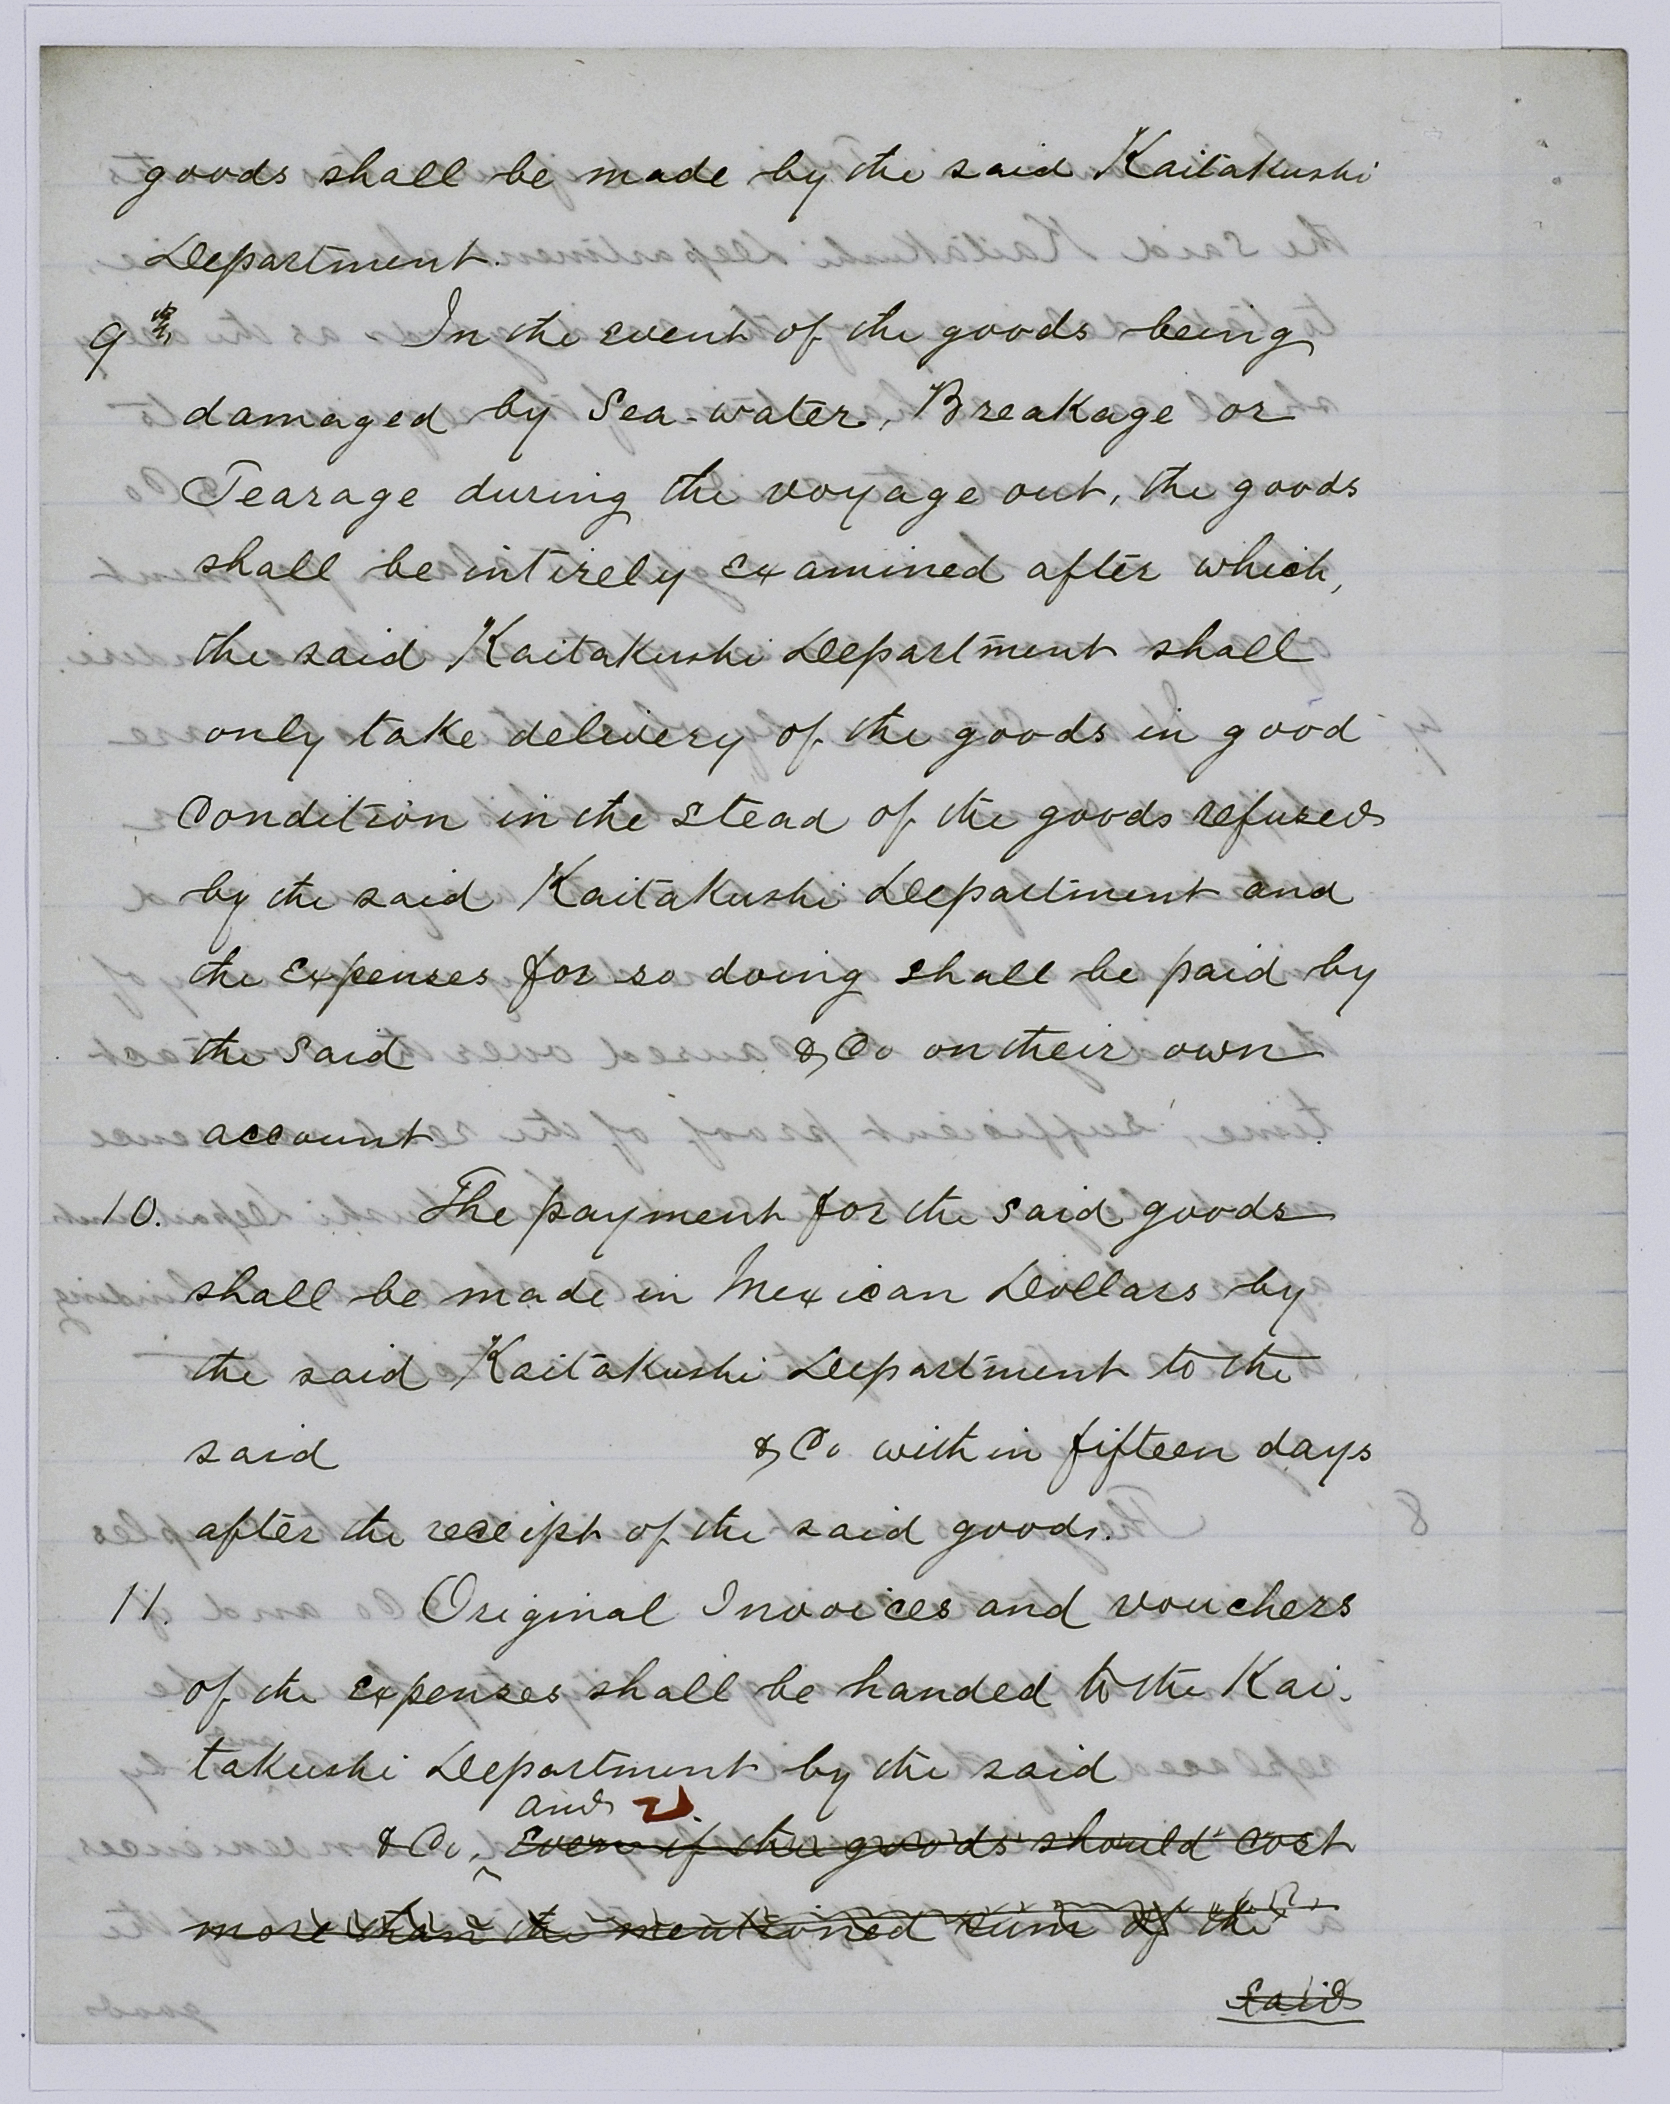 goods shall be made by the said Kaitakushi
Department.
9th In the event of the goods being
damaged by Sea-water, Breakage or
Tearage during the voyage out, the goods
shall be intirely examined after which,
the said Kaitakushi Department shall
only take delivery of the goods in good
Condition in the stead of the goods refused
by the said Kaitakushi Department and
the expenses for so doing shall be paid by
the said & Co on their own
account
10. The payment for the said goods
shall be made in Mexican Dollars by
the said Kaitakushi Department to the
said & Co within fifteen days
after the receipt of the said goods.
11. Original Invoices and vouchers
of the expenses shall be handed to the Kai-
takushi Department by the said
and
& Co, Even if the goods should cost
more than the mentioned sum of the
said